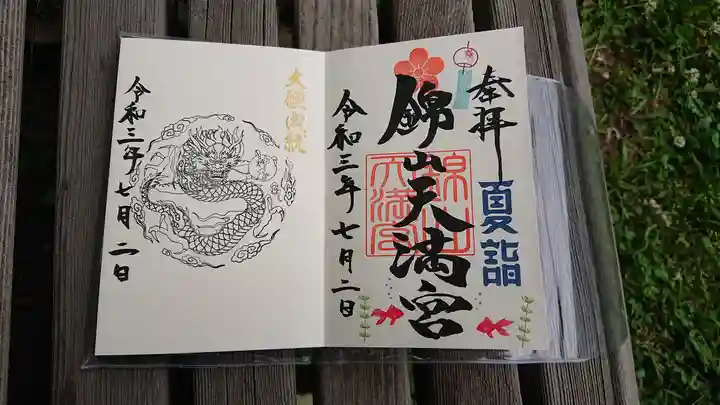 奉拝
夏詣
錦山天満宮
錦山
天満宮
令和三年七月二日
大願成就
令和三年七月二日